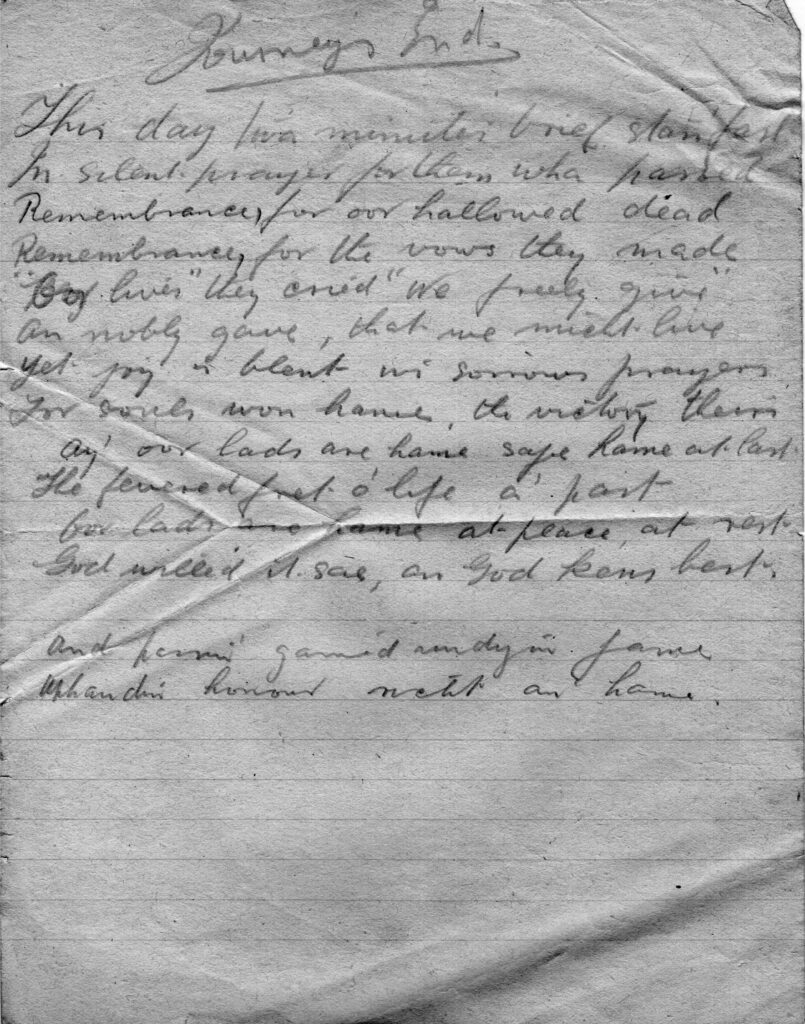 Journey's End.
This day twa minutes brief stan' fast
In silent prayer for them wha passed
Remembrance, for oor hallowed dead
Remembrance, for the vows they made
lives" they cried "We freely give"
an nobly gave, that we micht live
Yet joy is blent wi sorrows prayers
For souls won hame, the victory theirs
Ay' our lads are hame safe hame at last
The fevered fret o' life a' past
Oor lads are hame at peace, at rest
God willed it sae, an God kens best.
And passin' gained undyin fame
Uphaudin honour richt an' hame.